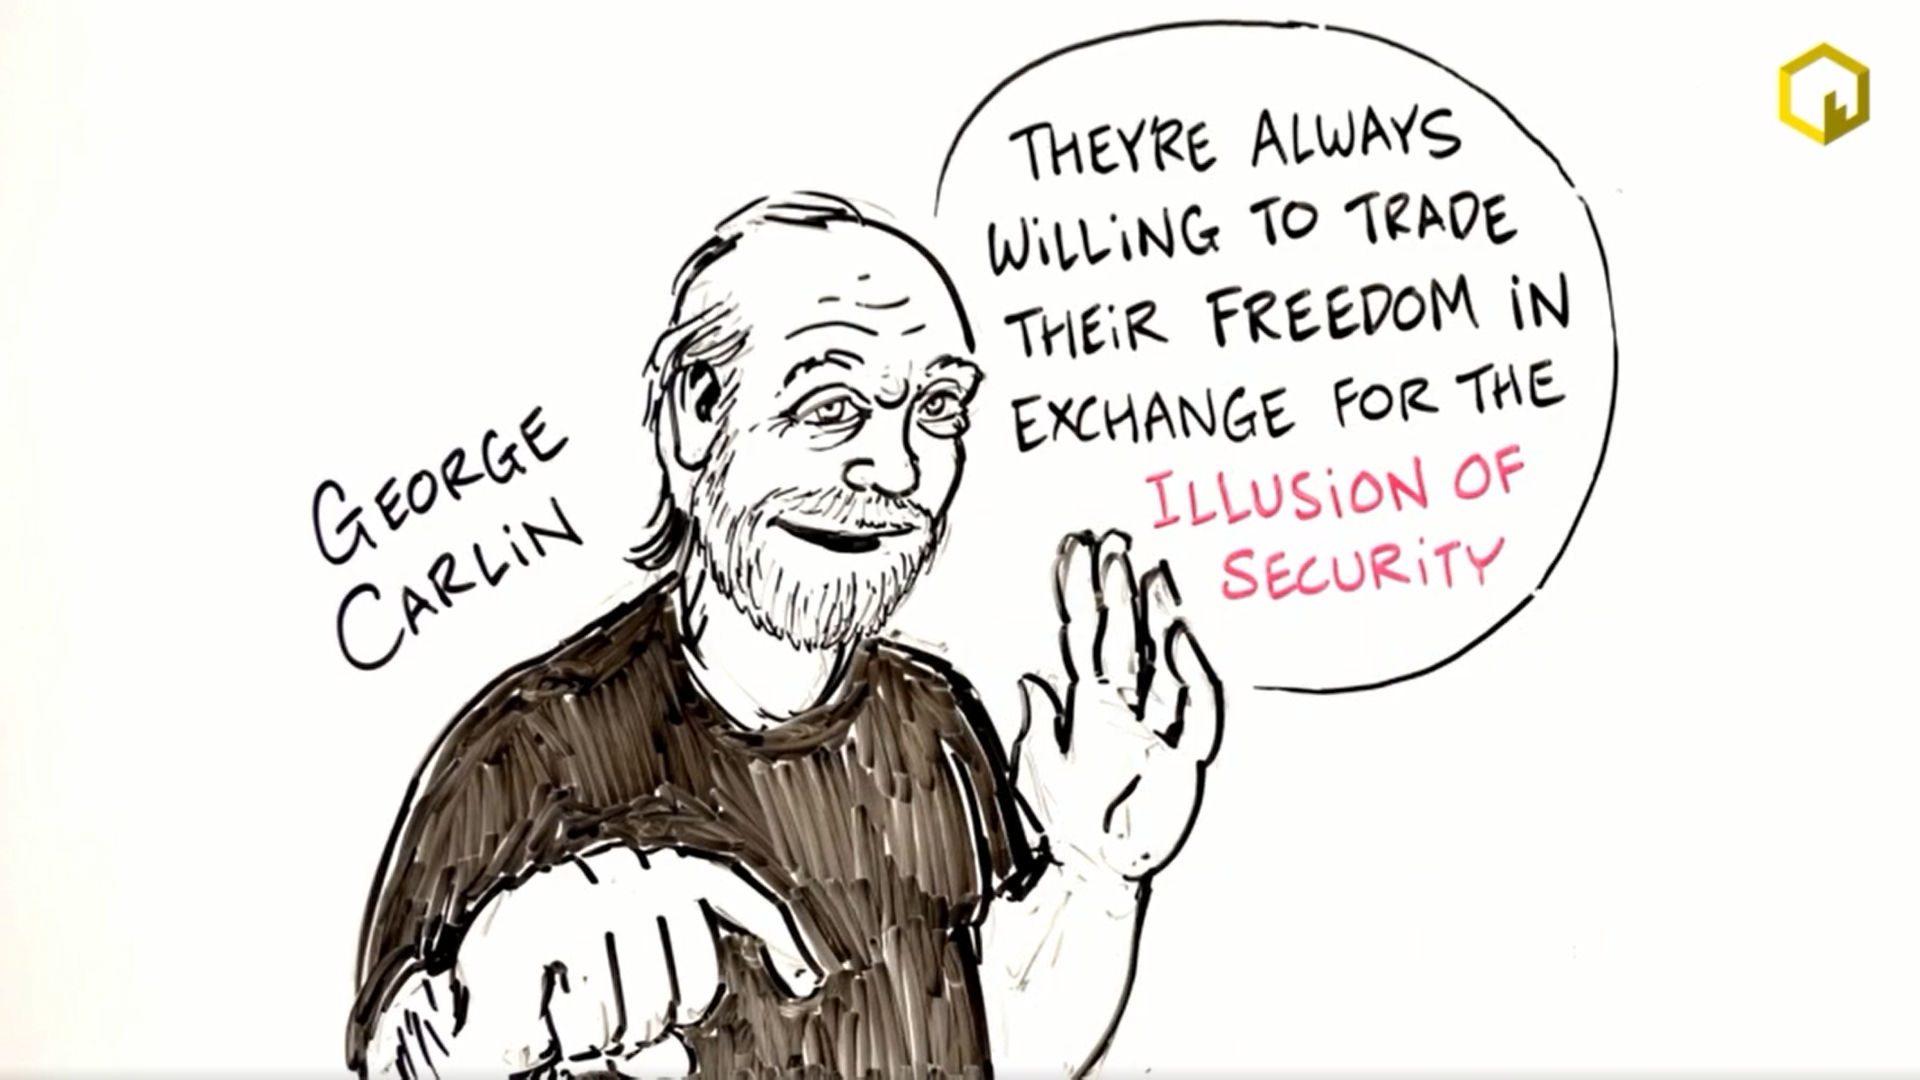 GEORGE
CARLiN
THEY'RE ALWAYS
WiLLiNG TO TRADE
THEiR FREEDOM iN
EXCHANGE FOR THE
ILLUSiON OF
SECURiTY